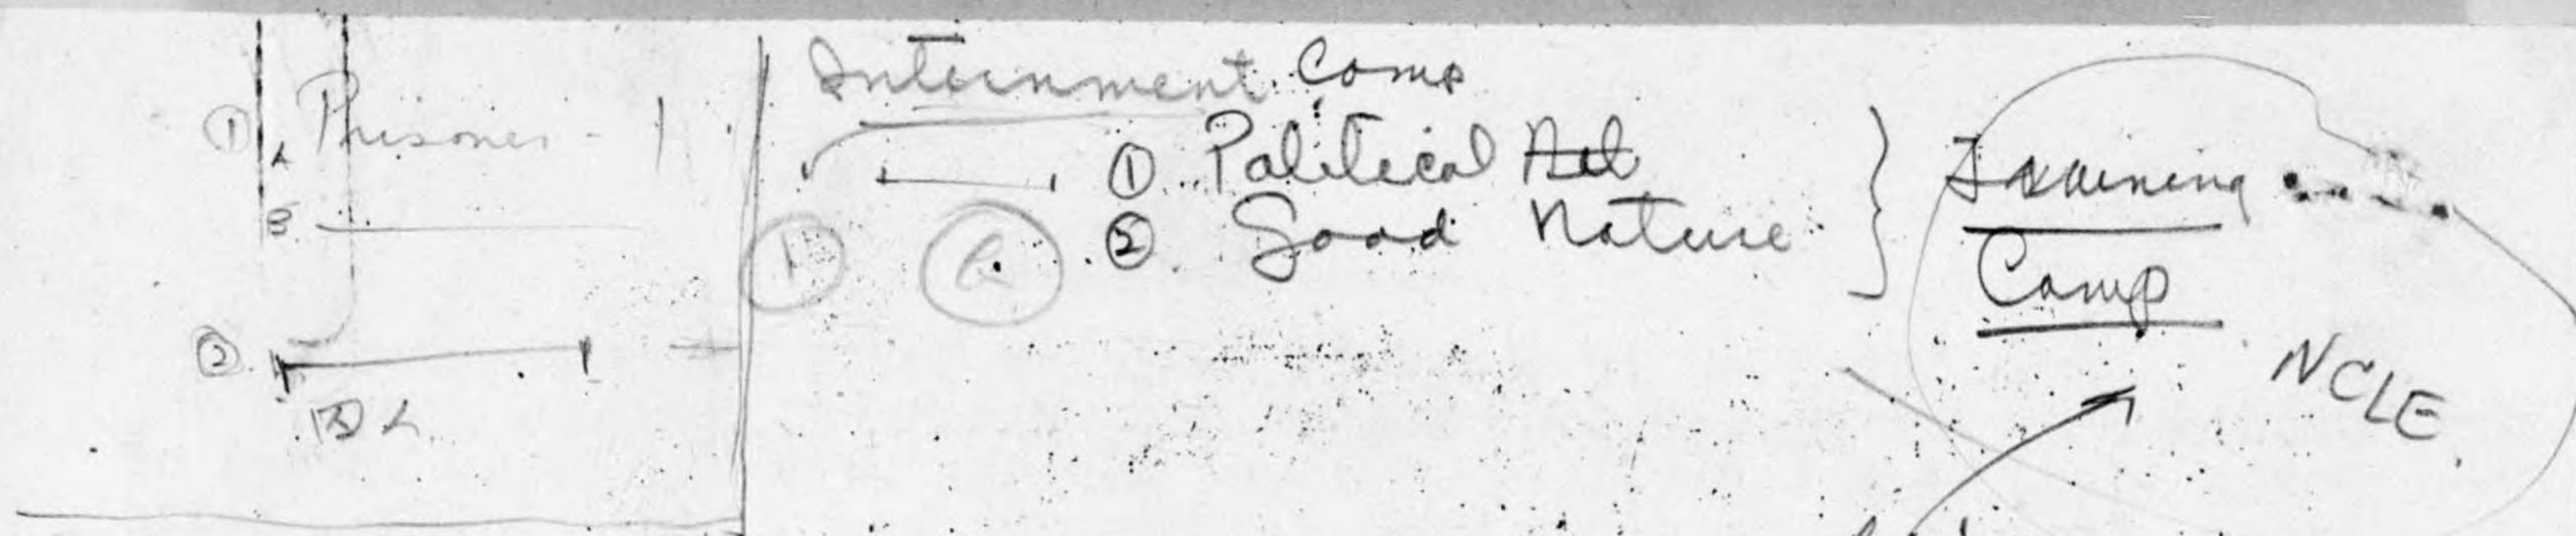 ① A Prisoner - 1
B
②
Internment Camp
① Political
② Good Nature
① ②
Training
Camp
NCLE